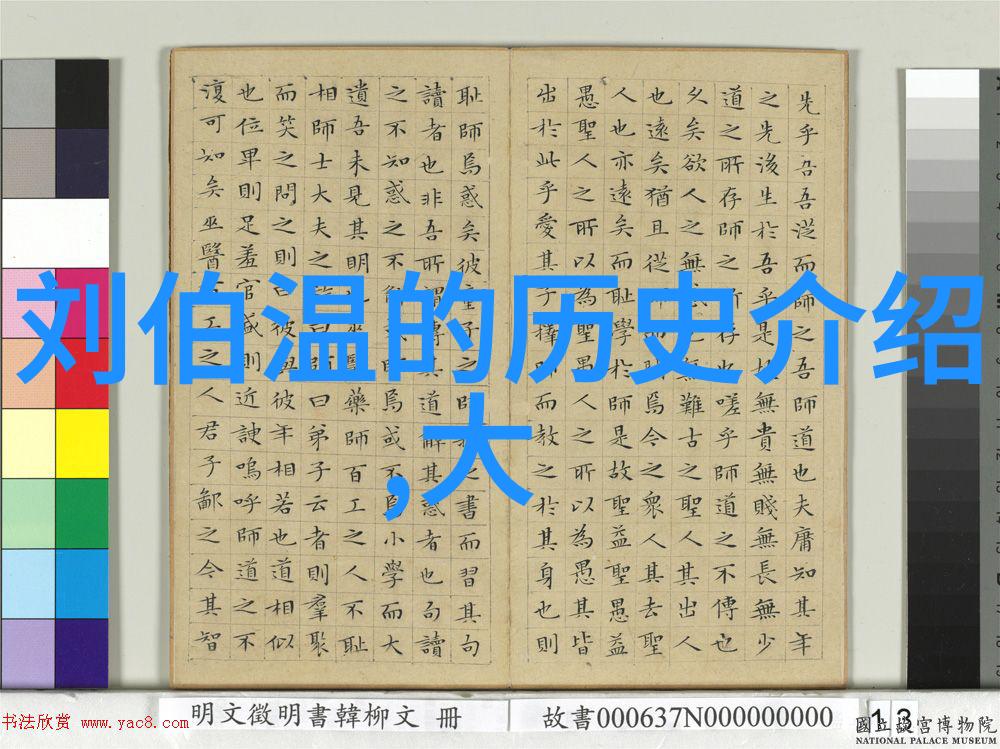 先乎吾吾從而師之吾師道也夫庸知其年
之先後生於吾乎是故無貴無賤無長無少
道之所存師之所存也嗟乎師道之不傳也
久矣欲人之無惑也無難古之聖人其出人
也遠矣猶且從師而問焉今之衆人其去聖
人也亦遠矣而耻學於師是故聖益聖愚益
愚聖人之所以為聖愚人之所以為愚其皆
出於此乎愛其子擇師而教之於其身也則
耻師焉惑矣彼童子之師授之書而習其句
讀者也非吾所謂傳其道解其惑者也句讀
之不知惑之不解或師焉或不焉小學而大
遺吾未見其明也巫醫藥師百工之人不耻
相師士大夫之族曰師曰弟子云者則羣聚
而笑之問之則曰彼與彼年相若也道相似
也位卑則足羞官盛則近諛嗚呼師道之不
復可知矣巫醫百工之人君子鄙之今其智
刘伯温的历史介绍
,大
明文徵明書韓柳文 冊
故書000637N000000000
13
书法欣赏 www.yac8.com
國立故宮博物院
NATIONAL PALACE MUSEUM